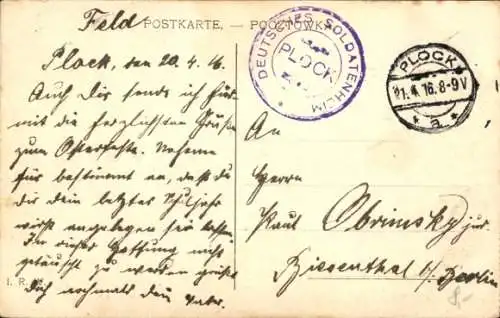 Feld POSTKARTE. — POCZTÓWKA
DEUTSCHES SOLDATENHEIM
PLOCK
PLOCK
21.4.16.8-9V
* a *
Plock, den 20.4.16
Auch Dir sende ich hier
mit die herzlichsten Grüße
zum Osterfeste. Nehme
für bestimmt an, daß du
dir dein letztes Schuljahr
wirst angelegen sein lassen.
In dieser Hoffnung nicht
getäuscht zu werden grüßt
Dich nochmals dein Vater.
I. R.
An
Herrn
Paul Obrimsky jur.
Biesenthal b/ Berlin
8,-